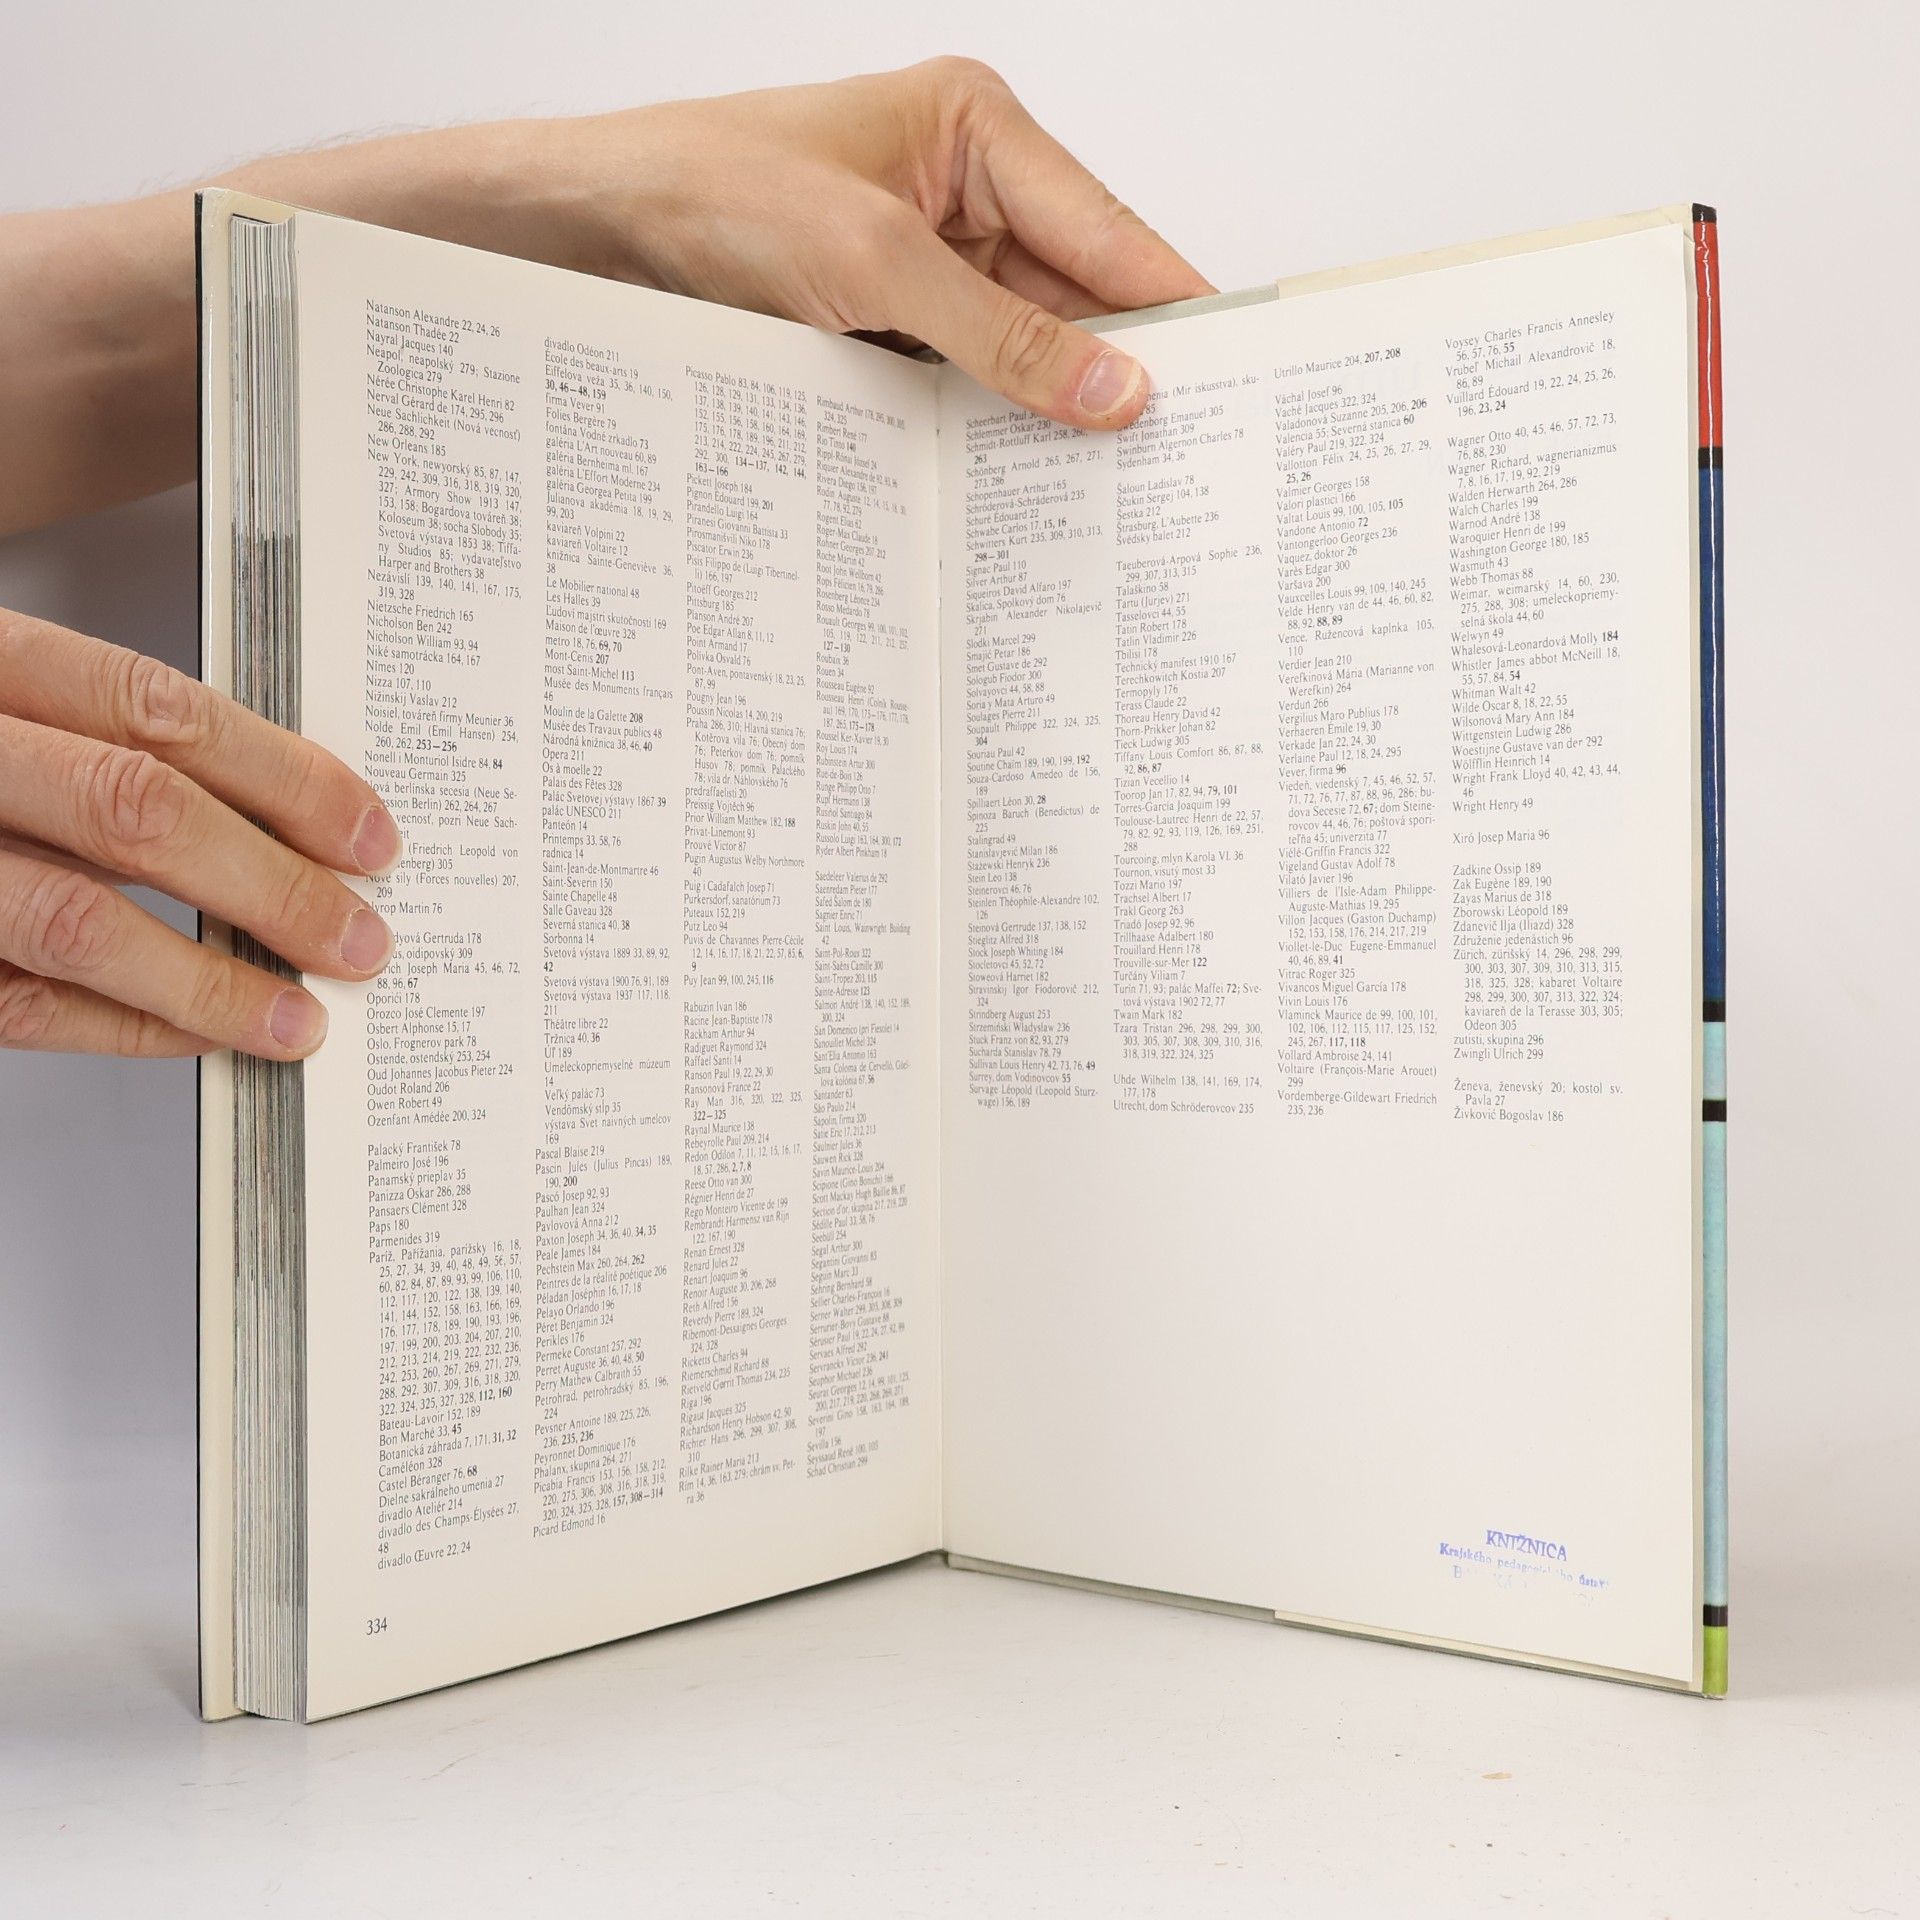 Natanson Alexandre 22, 24, 26
Natanson Thadée 22
Nayral Jacques 140
Neapol, neapolský 279; Stazione
Zoologica 279
Nérée Christophe Karel Henri 82
Nerval Gérard de 174, 295, 296
Neue Sachlichkeit (Nová vecnosť)
286, 288, 292
New Orleans 185
New York, newyorský 85, 87, 147,
229, 242, 309, 316, 318, 319, 320,
327; Armory Show 1913 147,
153, 158; Bogardova továreň 38;
Koloseum 38; socha Slobody 35;
Svetová výstava 1853 38; Tiffa-
ny Studios 85; vydavateľstvo
Harper and Brothers 38
Nezávislí 139, 140, 141, 167, 175,
319, 328
Nietzsche Friedrich 165
Nicholson Ben 242
Nicholson William 93, 94
Niké samotrácka 164, 167
Nîmes 120
Nizza 107, 110
Nižinskij Vaslav 212
Noisiel, továreň firmy Meunier 36
Nolde Emil (Emil Hansen) 254,
260, 262, 253—256
Nonell i Monturiol Isidre 84, 84
Nouveau Germain 325
berlínska secesia (Neue Se-
ssion Berlin) 262, 264, 267
vecnosť, pozri Neue Sach-
(Friedrich Leopold von
enberg) 305
Nové sily (Forces nouvelles) 207,
209
Nyrop Martin 76
Gertruda 178
oidipovský 309
Joseph Maria 45, 46, 72,
88, 96, 67
Oporići 178
Orozco José Clemente 197
Osbert Alphonse 15, 17
Oslo, Frognerov park 78
Ostende, ostendský 253, 254
Oud Johannes Jacobus Pieter 224
Oudot Roland 206
Owen Robert 49
Ozenfant Amédée 200, 324
Palacký František 78
Palmeiro José 196
Panamský prieplav 35
Panizza Oskar 286, 288
Pansaers Clément 328
Paps 180
Parmenides 319
Paríž, Parížania, parížsky 16, 18,
25, 27, 34, 39, 40, 48, 49, 56, 57,
60, 82, 84, 87, 89, 93, 99, 106, 110,
112, 117, 120, 122, 138, 139, 140,
141, 144, 152, 158, 163, 166, 169,
176, 177, 178, 189, 190, 193, 196,
197, 199, 200, 203, 204, 207, 210,
212, 213, 214, 219, 222, 232, 236,
242, 253, 260, 267, 269, 271, 279,
288, 292, 307, 309, 316, 318, 320,
322, 324, 325, 327, 328, 112, 160
Bateau-Lavoir 152, 189
Bon Marché 33, 45
Botanická záhrada 7, 171, 31, 32
Caméléon 328
Castel Béranger 76, 68
Dielne sakrálneho umenia 27
divadlo Ateliér 214
divadlo des Champs-Élysées 27,
48
divadlo Œuvre 22, 24
divadlo Odéon 211
École des beaux-arts 19
Eiffelova veža 35, 36, 140, 150,
30, 46—48, 159
firma Vever 91
Folies Bergère 79
fontána Vodné zrkadlo 73
galéria L'Art nouveau 60, 89
galéria Bernheima ml. 167
galéria L'Effort Moderne 234
galéria Georgea Petita 199
Julianova akadémia 18, 19, 29,
99, 203
kaviareň Volpini 22
kaviareň Voltaire 12
knižnica Sainte-Geneviève 36,
38
Le Mobilier national 48
Les Halles 39
Ľudoví majstri skutočnosti 169
Maison de l'œuvre 328
metro 18, 76, 69, 70
Mont-Cenis 207
most Saint-Michel 113
Musée des Monuments français
46
Moulin de la Galette 208
Musée des Travaux publics 48
Národná knižnica 38, 46, 40
Opera 211
Os à moelle 22
Palais des Fêtes 328
Palác Svetovej výstavy 1867 39
palác UNESCO 211
Panteón 14
Printemps 33, 58, 76
radnica 14
Saint-Jean-de-Montmartre 46
Saint-Séverin 150
Sainte Chapelle 48
Salle Gaveau 328
Severná stanica 40, 38
Sorbonna 14
Svetová výstava 1889 33, 89, 92,
42
Svetová výstava 1900 76, 91, 189
Svetová výstava 1937 117, 118,
211
Théâtre libre 22
Tržnica 40, 36
ÚĽ 189
Umeleckopriemyselné múzeum
14
Veľký palác 73
Vendômsky stĺp 35
výstava Svet naivných umelcov
169
Pascal Blaise 219
Pascin Jules (Julius Pincas) 189,
190, 200
Pascó Josep 92, 93
Paulhan Jean 324
Pavlovová Anna 212
Paxton Joseph 34, 36, 40, 34, 35
Peale James 184
Pechstein Max 260, 264, 262
Peintres de la réalité poétique 206
Péladan Joséphin 16, 17, 18
Pelayo Orlando 196
Péret Benjamin 324
Perikles 176
Permeke Constant 257, 292
Perret Auguste 36, 40, 48, 50
Perry Mathew Calbraith 55
Petrohrad, petrohradský 85, 196,
224
Pevsner Antoine 189, 225, 226,
236, 235, 236
Peyronnet Dominique 176
Phalanx, skupina 264, 271
Picabia Francis 153, 156, 158, 212,
220, 275, 306, 308, 316, 318, 319,
320, 324, 325, 328, 157, 308—314
Picard Edmond 16
Picasso Pablo 83, 84, 106, 119, 125,
126, 128, 129, 131, 133, 134, 136,
137, 138, 139, 140, 141, 143, 146,
152, 155, 156, 158, 160, 164, 169,
175, 176, 178, 189, 196, 211, 212,
213, 214, 222, 224, 245, 267, 279,
292, 300, 134—137, 142, 144,
163—166
Pickett Joseph 184
Pignon Edouard 199, 201
Pirandello Luigi 164
Piranesi Giovanni Battista 33
Pirosmanišvili Niko 178
Piscator Erwin 236
Pisis Filippo de (Luigi Tibertinel-
li) 166, 197
Pitoëff Georges 212
Pittsburg 185
Planson André 207
Poe Edgar Allan 8, 11, 12
Point Armand 17
Polívka Osvald 76
Pont-Aven, pontavenský 18, 23, 25,
87, 99
Pougny Jean 196
Poussin Nicolas 14, 200, 219
Praha 286, 310; Hlavná stanica 76;
Kotěrova vila 76; Obecný dom
76; Peterkov dom 76; pomník
Husov 78; pomník Palackého
78; vila dr. Náhlovského 76
predraffaelisti 20
Preissig Vojtěch 96
Prior William Matthew 182, 188
Privat-Linemont 93
Prouvé Victor 87
Pugin Augustus Welby Northmore
40
Puig i Cadafalch Josep 71
Purkersdorf, sanatórium 73
Puteaux 152, 219
Putz Leo 94
Puvis de Chavannes Pierre-Cécile
12, 14, 16, 17, 18, 21, 22, 57, 85, 6,
9
Puy Jean 99, 100, 245, 116
Rabuzin Ivan 186
Racine Jean-Baptiste 178
Rackham Arthur 94
Radiguet Raymond 324
Raffael Santi 14
Ranson Paul 19, 22, 29, 30
Ransonová France 22
Ray Man 316, 320, 322, 325,
322—325
Raynal Maurice 138
Rebeyrolle Paul 209, 214
Redon Odilon 7, 11, 12, 15, 16, 17,
18, 57, 286, 2, 7, 8
Reese Otto van 300
Régnier Henri de 27
Rego Monteiro Vicente de 199
Rembrandt Harmensz van Rijn
122, 167, 190
Renan Ernest 328
Renard Jules 22
Renart Joaquim 96
Renoir Auguste 30, 206, 268
Reth Alfred 156
Reverdy Pierre 189, 324
Ribemont-Dessaignes Georges
324, 328
Ricketts Charles 94
Riemerschmid Richard 88
Rietveld Gerrit Thomas 234, 235
Riga 196
Rigaut Jacques 325
Richardson Henry Hobson 42, 50
Richter Hans 296, 299, 307, 308,
310
Rilke Rainer Maria 213
Rím 14, 36, 163, 279; chrám sv. Pet-
ra 36
Rimbaud Arthur 178, 295, 300, 303
324, 325
Rimbert René 177
Rio Tinto 140
Rippl-Rónai József 24
Riquer Alexandre de 92, 93, 96
Rivera Diego 156, 197
Rodin Auguste 12, 14, 15, 18, 30,
77, 78, 92, 279
Rogent Elias 62
Roger-Max Claude 18
Rohner Georges 207, 212
Roche Martin 42
Root John Wellborn 42
Rops Félicien 16, 79, 286
Rosenberg Léonce 234
Rosso Medardo 78
Rouault Georges 99, 100, 101, 102,
105, 119, 122, 211, 212, 257,
127—130
Roubaix 36
Rouen 34
Rousseau Eugène 92
Rousseau Henri (Colník Rouse-
au) 169, 170, 175—176, 177, 178,
187, 265, 175—178
Roussel Ker-Xavier 19, 30
Roy Louis 174
Rubinstein Artur 300
Rue-de-Bois 126
Runge Philipp Otto 7
Rupf Hermann 138
Rusiñol Santiago 84
Ruskin John 40, 55
Russolo Luigi 163, 164, 300, 172
Ryder Albert Pinkham 18
Saedeleer Valerius de 292
Saenredam Pieter 177
Safed Salom de 180
Sagnier Enric 71
Saint Louis, Wainwright Building
42
Saint-Pol-Roux 322
Saint-Saëns Camille 300
Saint-Tropez 203, 115
Sainte-Adresse 123
Salmon André 138, 140, 152, 189,
300, 324
San Domenico (pri Fiesole) 14
Sanouillet Michel 324
Sant'Elia Antonio 163
Santa Coloma de Cervelló, Güel-
lova kolónia 67, 56
Santander 63
São Paulo 214
Sapolin, firma 320
Satie Eric 17, 212, 213
Saulnier Jules 36
Sauwen Rick 328
Savin Maurice-Louis 204
Scipione (Gino Bonichi) 166
Scott Mackay Hugh Baillie 86, 87
Section d'or, skupina 217, 219, 220
Sédille Paul 33, 58, 76
Seebüll 254
Segal Arthur 300
Segantini Giovanni 83
Seguin Marc 33
Sehring Bernhard 58
Sellier Charles-François 16
Serner Walter 299, 303, 308, 309
Serrurier-Bovy Gustave 88
Sérusier Paul 19, 22, 24, 27, 92, 99
Servaes Alfred 292
Servranckx Victor 236, 241
Seuphor Michael 236
Seurat Georges 12, 14, 99, 101, 125,
200, 217, 219, 220, 268, 269, 271
Severini Gino 158, 163, 164, 189,
197
Sevilla 156
Seyssaud René 100, 105
Schad Christian 299
334
Scheerbart Paul
Schlemmer Oskar 230
Schmidt-Rottluff Karl 258, 260,
263
Schönberg Arnold 265, 267, 271,
273, 286
Schopenhauer Arthur 165
Schröderová-Schräderová 235
Schuré Édouard 22
Schwabe Carlos 17, 15, 16
Schwitters Kurt 235, 309, 310, 313,
298—301
Signac Paul 110
Silver Arthur 87
Siqueiros David Alfaro 197
Skalica, Spolkový dom 76
Skrjabin Alexander Nikolajevič
271
Slodki Marcel 299
Smajić Petar 186
Smet Gustave de 292
Sologub Fiodor 300
Solvayovci 44, 58, 88
Soria y Mata Arturo 49
Soulages Pierre 211
Soupault Philippe 322, 324, 325,
304
Souriau Paul 42
Soutine Chaïm 189, 190, 199, 192
Souza-Cardoso Amedeo de 156,
189
Spilliaert Léon 30, 28
Spinoza Baruch (Benedictus) de
225
Stalingrad 49
Stanislavjević Milan 186
Stażewski Henryk 236
Stein Leo 138
Steinerovci 46, 76
Steinlen Théophile-Alexandre 102,
126
Steinová Gertrude 137, 138, 152
Stieglitz Alfred 318
Stock Joseph Whiting 184
Stocletovci 45, 52, 72
Stoweová Harriet 182
Stravinskij Igor Fiodorovič 212,
324
Strindberg August 253
Strzemiński Władysław 236
Stuck Franz von 82, 93, 279
Sucharda Stanislav 78, 79
Sullivan Louis Henry 42, 73, 76, 49
Surrey, dom Vodinovcov 55
Survage Léopold (Leopold Sturz-
wage) 156, 189
enia (Mir iskusstva), sku-
85
Swedenborg Emanuel 305
Swift Jonathan 309
Swinburn Algernon Charles 78
Sydenham 34, 36
Šaloun Ladislav 78
Ščukin Sergej 104, 138
Šestka 212
Štrasburg, L'Aubette 236
Švédsky balet 212
Taeuberová-Arpová Sophie 236,
299, 307, 313, 315
Talaškino 58
Tartu (Jurjev) 271
Tasselovci 44, 55
Tatin Robert 178
Tatlin Vladimir 226
Tbilisi 178
Technický manifest 1910 167
Terechkowitch Kostia 207
Termopyly 176
Terass Claude 22
Thoreau Henry David 42
Thorn-Prikker Johan 82
Tieck Ludwig 305
Tiffany Louis Comfort 86, 87, 88,
92, 86, 87
Tizian Vecellio 14
Toorop Jan 17, 82, 94, 79, 101
Torres-García Joaquim 199
Toulouse-Lautrec Henri de 22, 57,
79, 82, 92, 93, 119, 126, 169, 251,
288
Tourcoing, mlyn Karola VI. 36
Tournon, visutý most 33
Tozzi Mario 197
Trachsel Albert 17
Trakl Georg 263
Triadó Josep 92, 96
Trillhaase Adalbert 180
Trouillard Henri 178
Trouville-sur-Mer 122
Turčány Viliam 7
Turín 71, 93; palác Maffei 72; Sve-
tová výstava 1902 72, 77
Twain Mark 182
Tzara Tristan 296, 298, 299, 300,
303, 305, 307, 308, 309, 310, 316,
318, 319, 322, 324, 325
Uhde Wilhelm 138, 141, 169, 174,
177, 178
Utrecht, dom Schröderovcov 235
Utrillo Maurice 204, 207, 208
Váchal Josef 96
Vaché Jacques 322, 324
Valadonová Suzanne 205, 206, 206
Valencia 55; Severná stanica 60
Valéry Paul 219, 322, 324
Vallotton Félix 24, 25, 26, 27, 29,
25, 26
Valmier Georges 158
Valori plastici 166
Valtat Louis 99, 100, 105, 105
Vandone Antonio 72
Vantongerloo Georges 236
Vaquez, doktor 26
Varès Edgar 300
Varšava 200
Vauxcelles Louis 99, 109, 140, 245
Velde Henry van de 44, 46, 60, 82,
88, 92, 88, 89
Vence, Ružencová kaplnka 105,
110
Verdier Jean 210
Verefkinová Mária (Marianne von
Werefkin) 264
Verdun 266
Vergilius Maro Publius 178
Verhaeren Émile 19, 30
Verkade Jan 22, 24, 30
Verlaine Paul 12, 18, 24, 295
Vever, firma 96
Viedeň, viedenský 7, 45, 46, 52, 57,
71, 72, 76, 77, 87, 88, 96, 286; bu-
dova Secesie 72, 67; dom Steine-
rovcov 44, 46, 76; poštová spori-
teľňa 45; univerzita 77
Viélé-Griffin Francis 322
Vigeland Gustav Adolf 78
Vilató Javier 196
Villiers de l'Isle-Adam Philippe-
Auguste-Mathias 19, 295
Villon Jacques (Gaston Duchamp)
152, 153, 158, 176, 214, 217, 219
Viollet-le-Duc Eugene-Emmanuel
40, 46, 89, 41
Vitrac Roger 325
Vivancos Miguel García 178
Vivin Louis 176
Vlaminck Maurice de 99, 100, 101,
102, 106, 112, 115, 117, 125, 152,
245, 267, 117, 118
Vollard Ambroise 24, 141
Voltaire (François-Marie Arouet)
299
Vordemberge-Gildewart Friedrich
235, 236
Voysey Charles Francis Annesley
56, 57, 76, 55
Vrubeľ Michail Alexandrovič 18,
86, 89
Vuillard Édouard 19, 22, 24, 25, 26,
196, 23, 24
Wagner Otto 40, 45, 46, 57, 72, 73,
76, 88, 230
Wagner Richard, wagnerianizmus
7, 8, 16, 17, 19, 92, 219
Walden Herwarth 264, 286
Walch Charles 199
Warnod André 138
Waroquier Henri de 199
Washington George 180, 185
Wasmuth 43
Webb Thomas 88
Weimar, weimarský 14, 60, 230,
275, 288, 308; umeleckopriemy-
selná škola 44, 60
Welwyn 49
Whalesová-Leonardová Molly 184
Whistler James abbot McNeill 18,
55, 57, 84, 54
Whitman Walt 42
Wilde Oscar 8, 18, 22, 55
Wilsonová Mary Ann 184
Wittgenstein Ludwig 286
Woestijne Gustave van der 292
Wölfflin Heinrich 14
Wright Frank Lloyd 40, 42, 43, 44,
46
Wright Henry 49
Xiró Josep Maria 96
Zadkine Ossip 189
Zak Eugène 189, 190
Zayas Marius de 318
Zborowski Léopold 189
Zdanevič Ilja (Iliazd) 328
Združenie jedenástich 96
Zürich, zürišský 14, 296, 298, 299,
300, 303, 307, 309, 310, 313, 315,
318, 325, 328; kabaret Voltaire
298, 299, 300, 307, 313, 322, 324;
kaviareň de la Terasse 303, 305;
Odeon 305
zutisti, skupina 296
Zwingli Ulrich 299
Ženeva, ženevský 20; kostol sv.
Pavla 27
Živković Bogoslav 186
KNIŽNICA
Krajského pedagogického ústavu